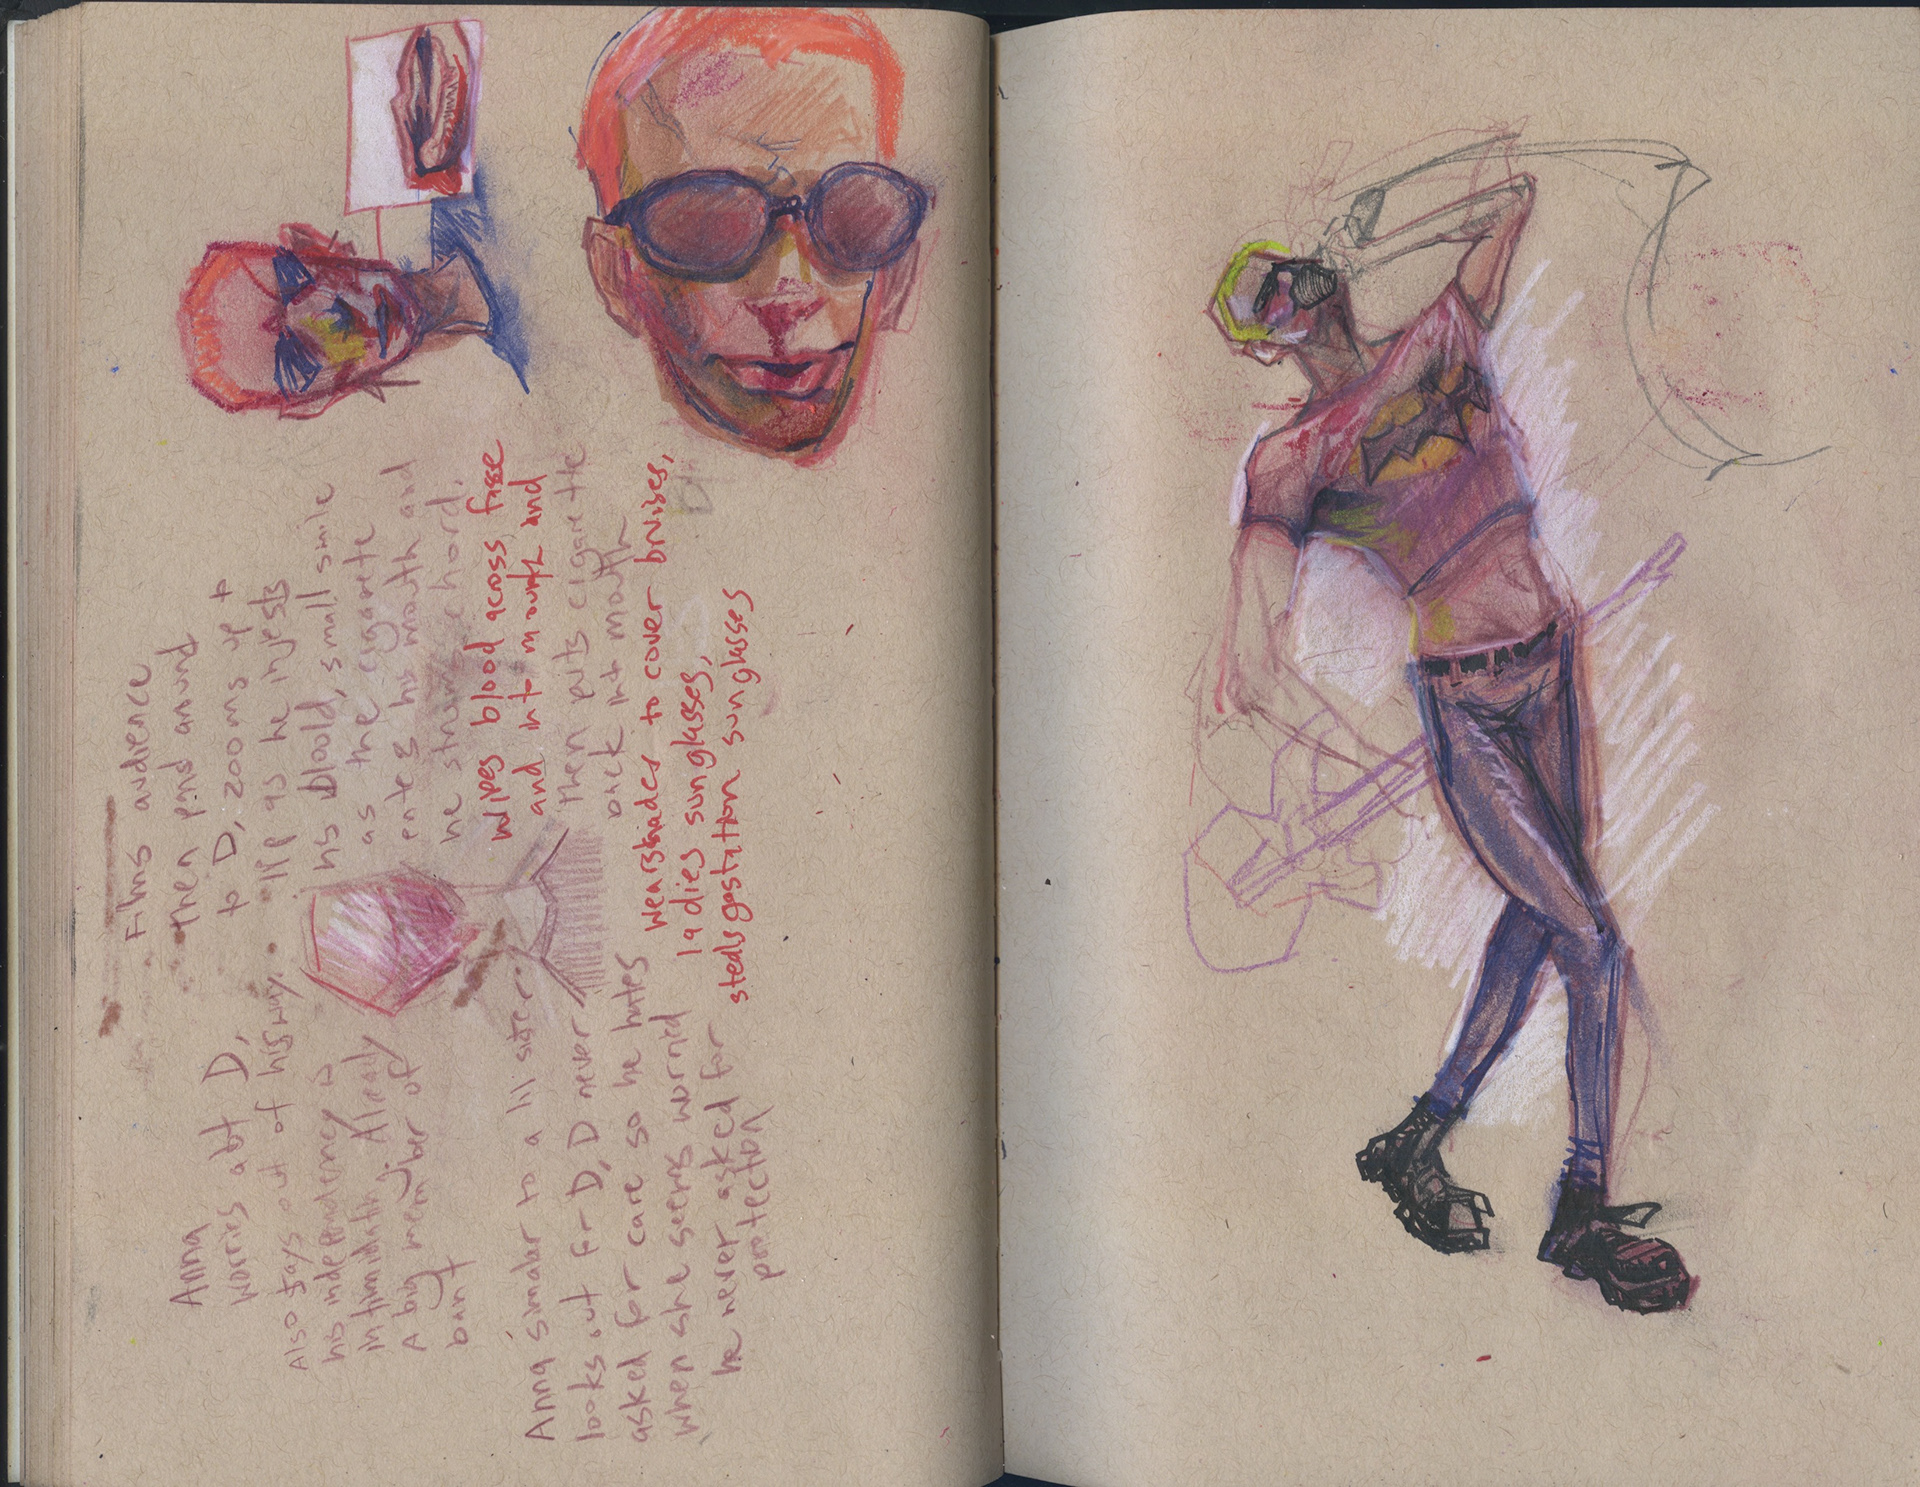 Films audience
then pans around
to D, zooms up +
his blood, small smile
as the cigarette
enters his mouth and
he strums chord.
wipes blood across face
and into mouth and
then puts cigarette
back int mouth
wears shades to cover bruises,
ladies sunglasses,
steals gastation sunglasses
Anna
worries abt D,
Also stays out of his way.
his independency is
A big member of
bant
Anna similar to a lil sister
looks out for D, D never
asked for care so he hates
when she seems worried
he never asked for
protection